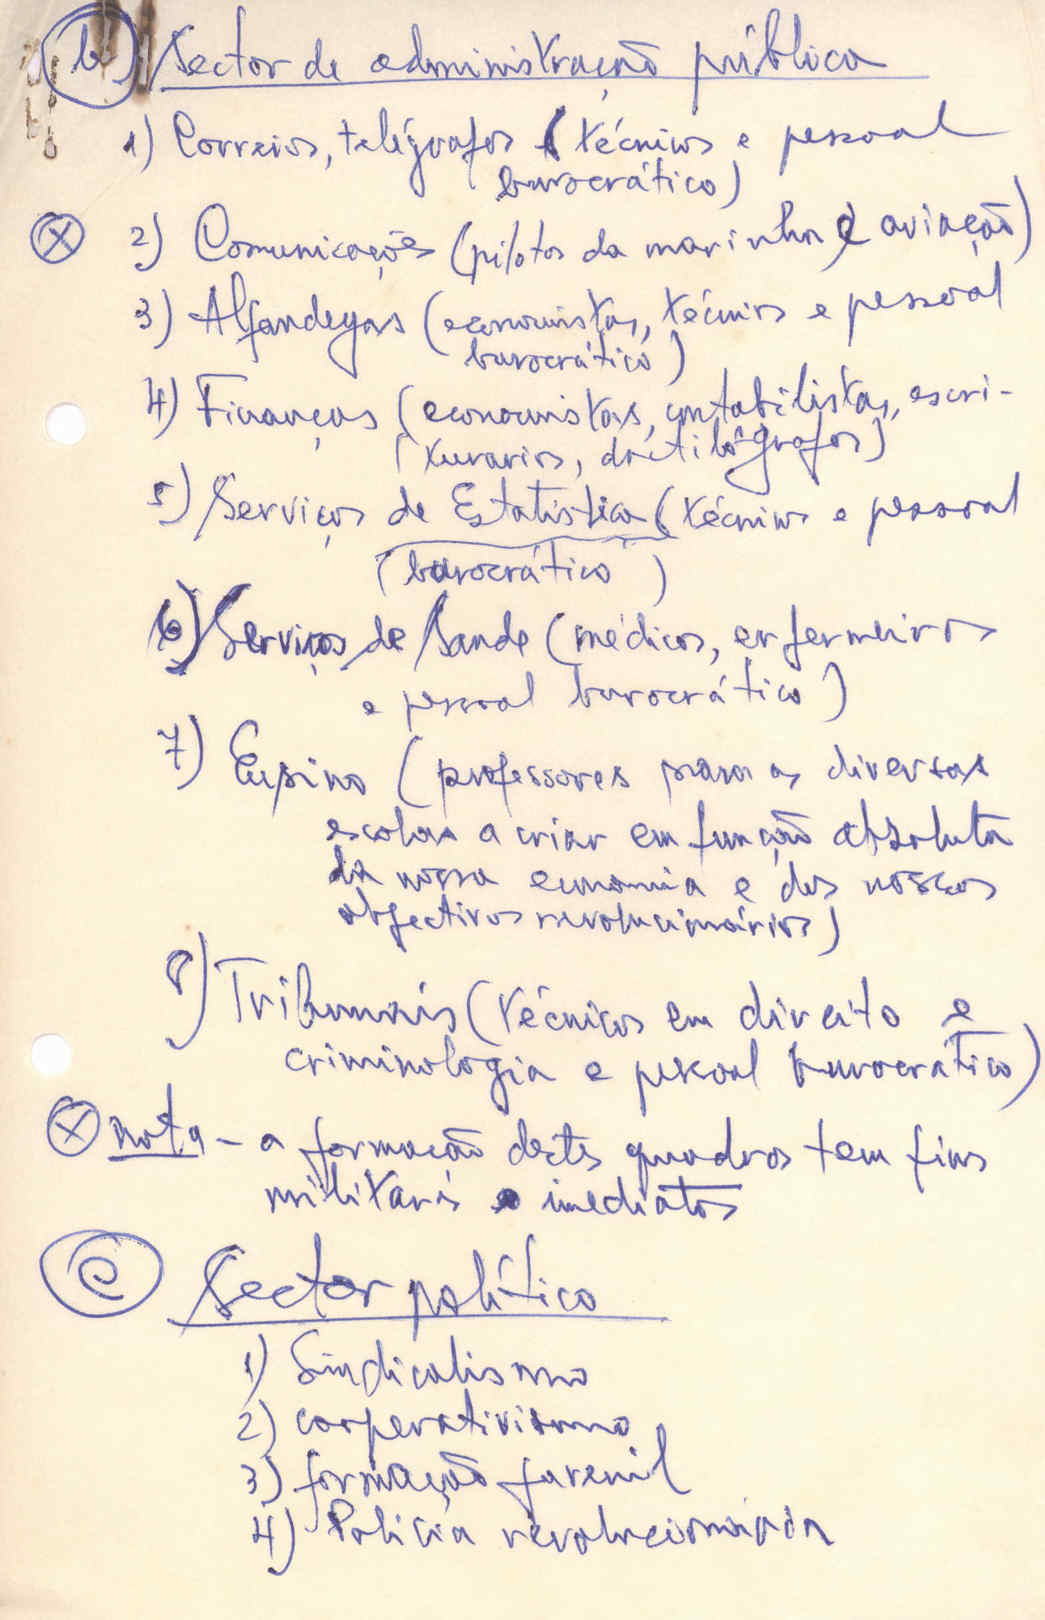 b) Sector de administração pública
1) Correios, telégrafos (técnicos e pessoal
burocrático)
(X) 2) Comunicações (pilotos da marinha e aviação)
3) Alfandegas (economistas, técnicos e pessoal
burocrático)
4) Finanças (economistas, contabilistas, escri-
turarios, dactilógrafos)
5) Serviços de Estatística (técnicos e pessoal
burocrático)
6) Serviços de Saude (médicos, enfermeiros
e pessoal burocrático)
7) Ensino (professores para as diversas
escolas a criar em função absoluta
da nossa economia e dos nossos
objectivos revolucionários)
8) Tribunais (técnicos em direito e
criminologia e pessoal burocrático)
(X) nota - a formação destes quadros tem fins
militares imediatos
c) Sector político
1) Sindicalismo
2) cooperativismo
3) formação juvenil
4) Policia revolucionária